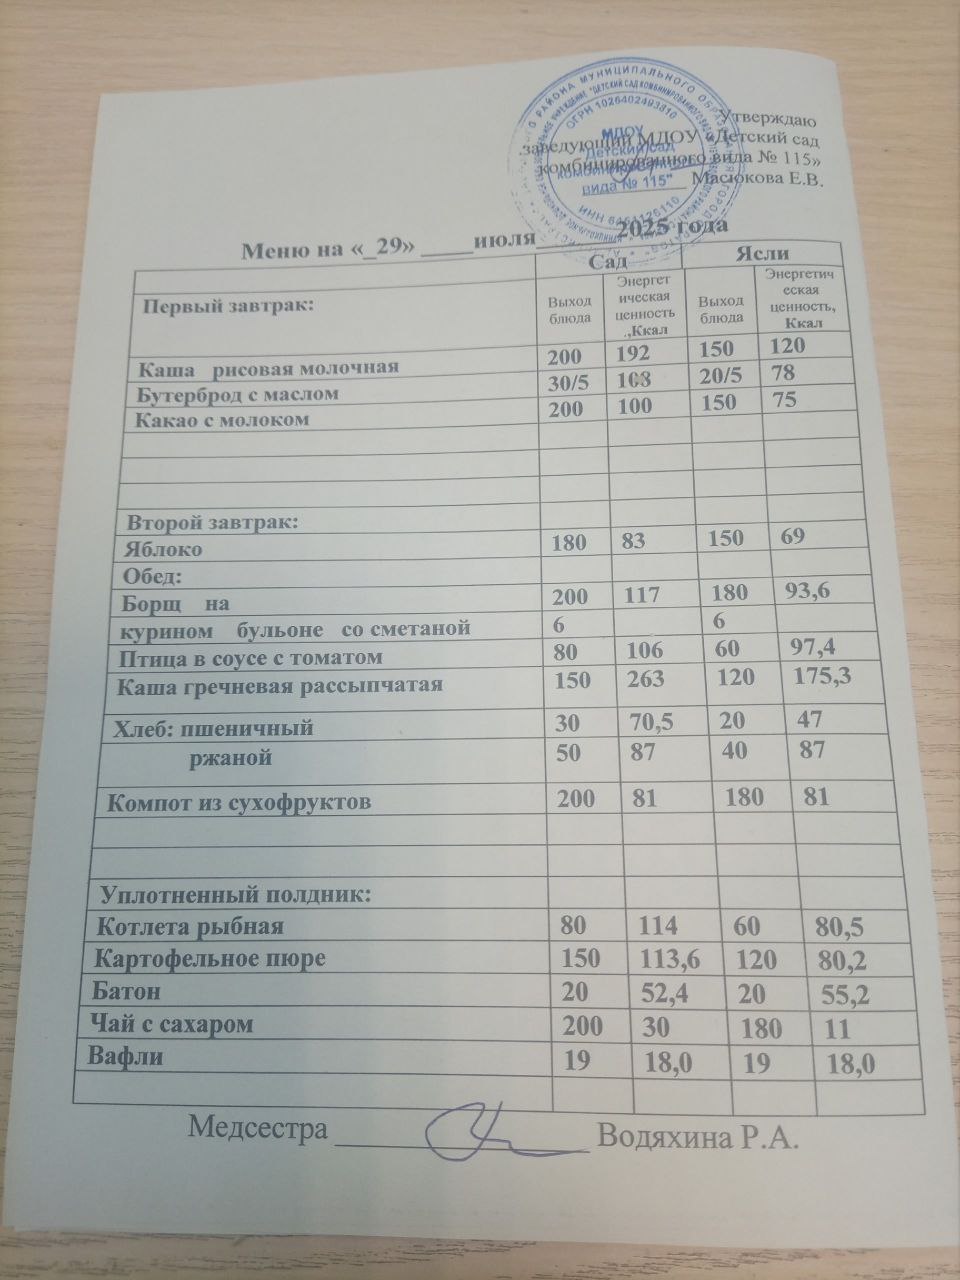 Утверждаю
заведующий МДОУ «Детский сад
комбинированного вида № 115»
Масюкова Е.В.
ОГРН 1026402493810
МДОУ
"Детский сад
комбинированного
вида № 115"
ИНН 6454126110
Меню на «_29» _____июля________2025 года
Сад Ясли
Первый завтрак: Выход блюда Энергетическая ценность.,Ккал Выход блюда Энергетическая ценность, Ккал
Каша рисовая молочная 200 192 150 120
Бутерброд с маслом 30/5 108 20/5 78
Какао с молоком 200 100 150 75
Второй завтрак:
Яблоко 180 83 150 69
Обед:
Борщ на 200 117 180 93,6
курином бульоне со сметаной 6 6
Птица в соусе с томатом 80 106 60 97,4
Каша гречневая рассыпчатая 150 263 120 175,3
Хлеб: пшеничный 30 70,5 20 47
ржаной 50 87 40 87
Компот из сухофруктов 200 81 180 81
Уплотненный полдник:
Котлета рыбная 80 114 60 80,5
Картофельное пюре 150 113,6 120 80,2
Батон 20 52,4 20 55,2
Чай с сахаром 200 30 180 11
Вафли 19 18,0 19 18,0
Медсестра ________________ Водяхина Р.А.